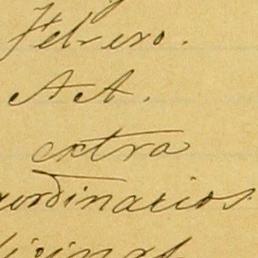 Febrero.
A A.
extra
ordinarios